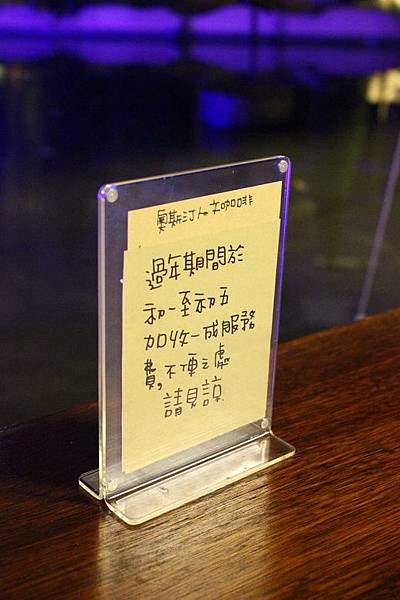 奧斯汀人文咖啡
過年期間於
初一至初五
加收一成服務
費,不便之處
請見諒